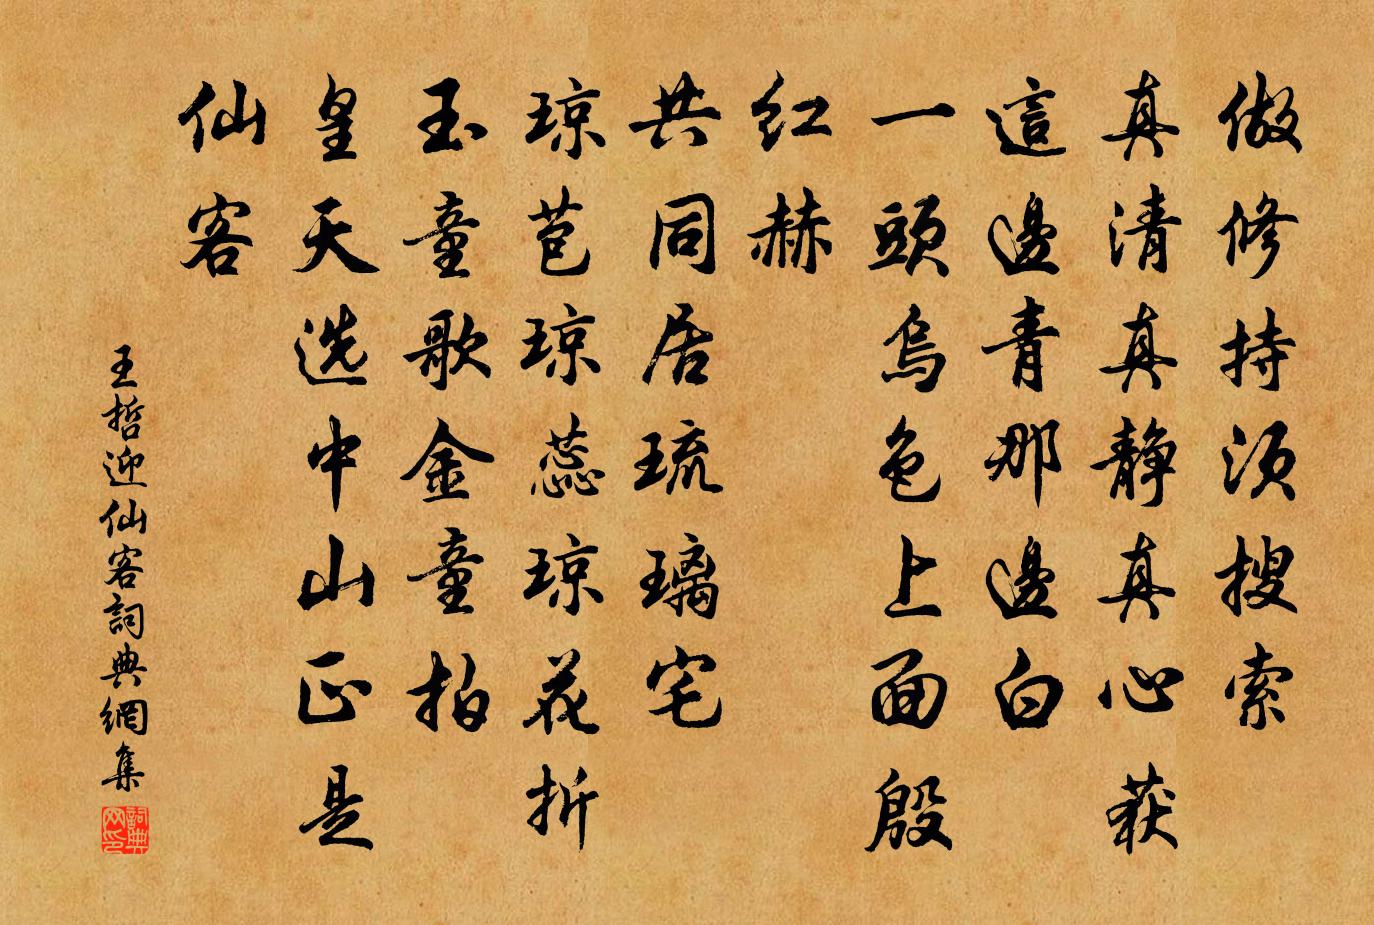 做修持须搜索
真清真静真心获
這邊青那邊白
一頭烏色上面殷
红赫
共同居琉璃宅
琼苞琼蕊琼花折
玉童歌金童拍
皇天选中山正是
仙客
王哲迎仙客詞典網集
詞典网印